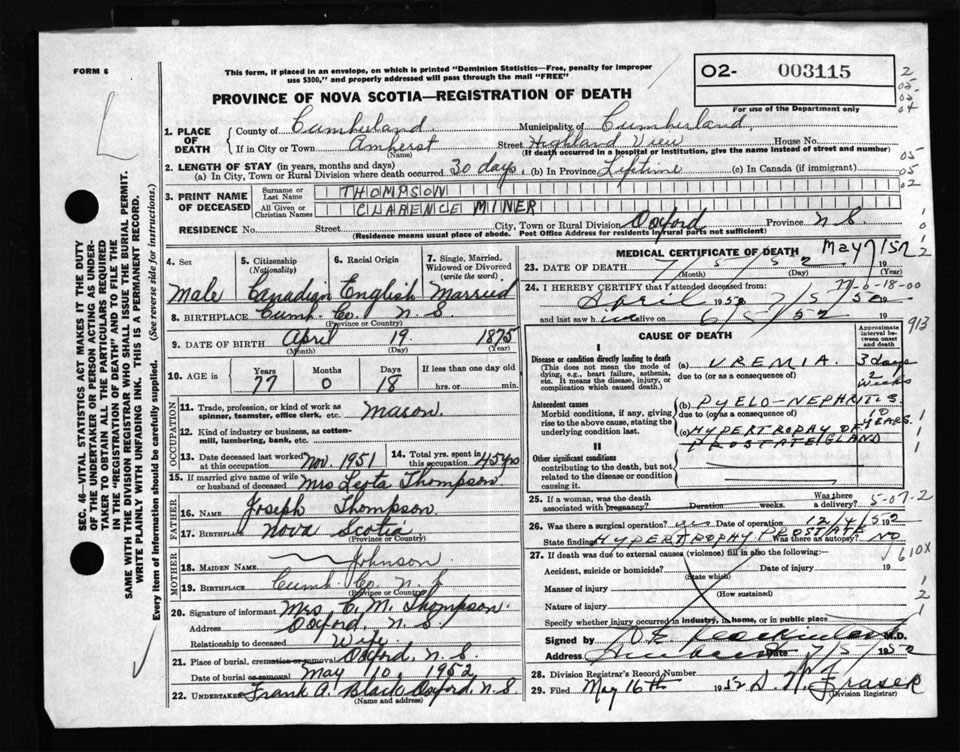 FORM 6
This form, if placed in an envelope, on which is printed "Dominion Statistics—Free, penalty for improper
use $300," and properly addressed will pass through the mail "FREE"
PROVINCE OF NOVA SCOTIA—REGISTRATION OF DEATH
02- 003115
For use of the Department only
2
05-
02
04
05
05-
02
SEC. 46—VITAL STATISTICS ACT MAKES IT THE DUTY
OF THE UNDERTAKER OR PERSON ACTING AS UNDER-
TAKER TO OBTAIN ALL THE PARTICULARS REQUIRED
IN THE "REGISTRATION OF DEATH" AND TO FILE THE
SAME WITH THE DIVISION REGISTRAR WHO SHALL ISSUE THE BURIAL PERMIT.
WRITE PLAINLY WITH UNFADING INK. THIS IS A PERMANENT RECORD.
Every item of information should be carefully supplied. (See reverse side for instructions.)
1. PLACE OF DEATH
County of Cumberland Municipality of Cumberland
If in City or Town Amherst Street Highland View House No.
(Name) (If death occurred in a hospital or institution, give the name instead of street and number)
2. LENGTH OF STAY (in years, months and days)
(a) In City, Town or Rural Division where death occurred 30 days (b) In Province Lifetime (c) In Canada (if immigrant)
3. PRINT NAME OF DECEASED
Surname or Last Name THOMPSON
All Given or Christian Names CLARENCE MINER
RESIDENCE No. Street City, Town or Rural Division Oxford Province N.S.
(Residence means usual place of abode. Post Office Address for residents in rural parts not sufficient)
4. Sex 5. Citizenship (Nationality) 6. Racial Origin 7. Single, Married, Widowed or Divorced (write the word)
Male Canadian English Married
8. BIRTHPLACE Cumb. Co. N.S.
(Province or Country)
9. DATE OF BIRTH April 19 1875
(Month) (Day) (Year)
10. AGE in Years Months Days If less than one day old
77 0 18 hrs. or min.
OCCUPATION
11. Trade, profession, or kind of work as spinner, teamster, office clerk, etc. Mason.
12. Kind of industry or business, as cotton-mill, lumbering, bank, etc.
13. Date deceased last worked at this occupation Nov. 1951 14. Total yrs. spent in this occupation 45 yrs
15. If married give name of wife or husband of deceased Mrs Leota Thompson
FATHER
16. Name Joseph Thompson
17. Birthplace Nova Scotia
(Province or Country)
MOTHER
18. MAIDEN NAME Johnson
19. BIRTHPLACE Cumb. Co. N.S.
(Province or Country)
20. Signature of informant Mrs. C. M. Thompson
Address Oxford, N.S.
Relationship to deceased Wife
21. Place of burial, cremation or removal Oxford, N.S.
Date of burial or removal May 10, 1952
22. Undertaker Frank A. Black Oxford, N.S.
(Name and address)
MEDICAL CERTIFICATE OF DEATH
May 7/52
23. DATE OF DEATH 7 5 52 19
(Month) (Day) (Year)
24. I HEREBY CERTIFY that I attended deceased from:
77-0-18-00
April 1952 7/5/52 19
and last saw h im alive on 6/5/52 19
913
CAUSE OF DEATH
Approximate interval between onset and death
I
Disease or condition directly leading to death
(This does not mean the mode of dying, e.g., heart failure, asthenia, etc. It means the disease, injury, or complication which caused death.)
(a) UREMIA. 3 days
due to (or as a consequence of)
2 weeks
Antecedent causes
Morbid conditions, if any, giving rise to the above cause, stating the underlying condition last.
(b) PYELO-NEPHRITIS.
due to (or as a consequence of) 10 YEARS.
(c) HYPERTROPHY OF PROSTATE GLAND
II
Other significant conditions
contributing to the death, but not related to the disease or condition causing it
25. If a woman, was the death associated with pregnancy? Duration weeks. Was there a delivery?
5-07-2
26. Was there a surgical operation? yes Date of operation 12/4/52 192
State findings HYPERTROPHY PROSTATE Was there an autopsy? NO
610X
27. If death was due to external causes (violence) fill in also the following:
Accident, suicide or homicide? Date of injury 19
(State which)
Manner of injury
(How sustained)
Nature of injury
Specify whether injury occurred in industry, in home, or in public place
Signed by M.D.
Address Amherst Date 7/5/1952
28. Division Registrar's Record Number
29. Filed May 16th 1952 D. W. Fraser
(Division Registrar)